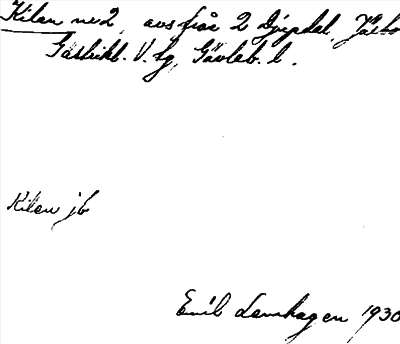 Kilen nr 2, avs från 2 Djupdal, Järbo
Gästrikl. V. tg, Gävleb. l.
Kilen jb
Emil Lamhagen 1930